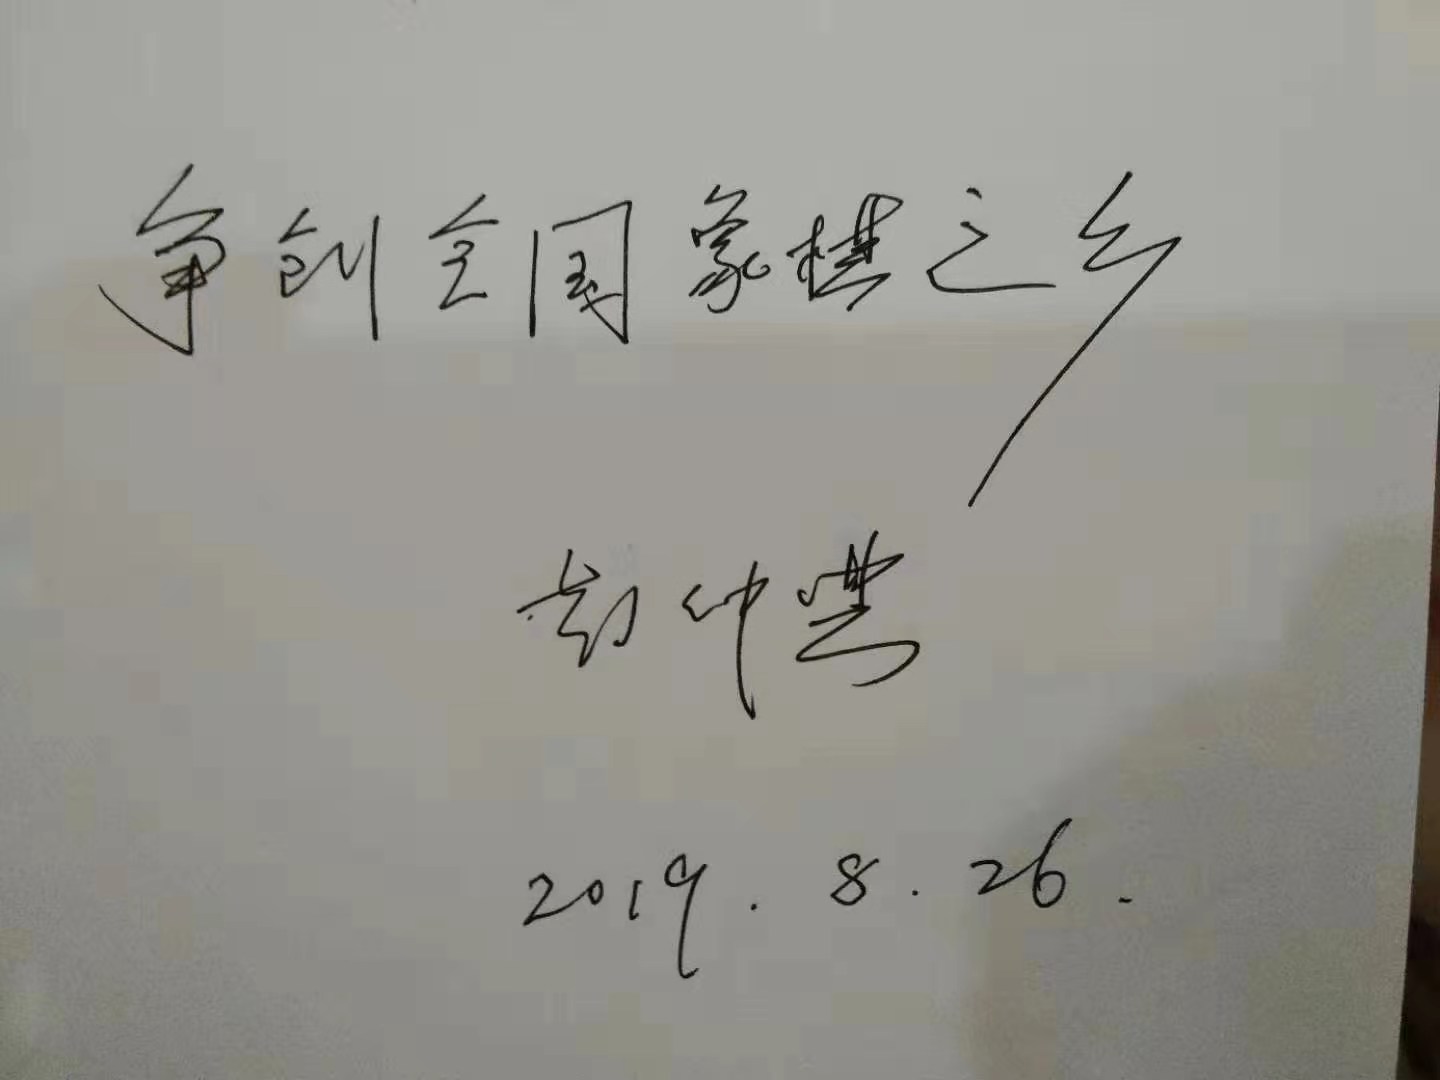 争创全国象棋之乡
2019.8.26.